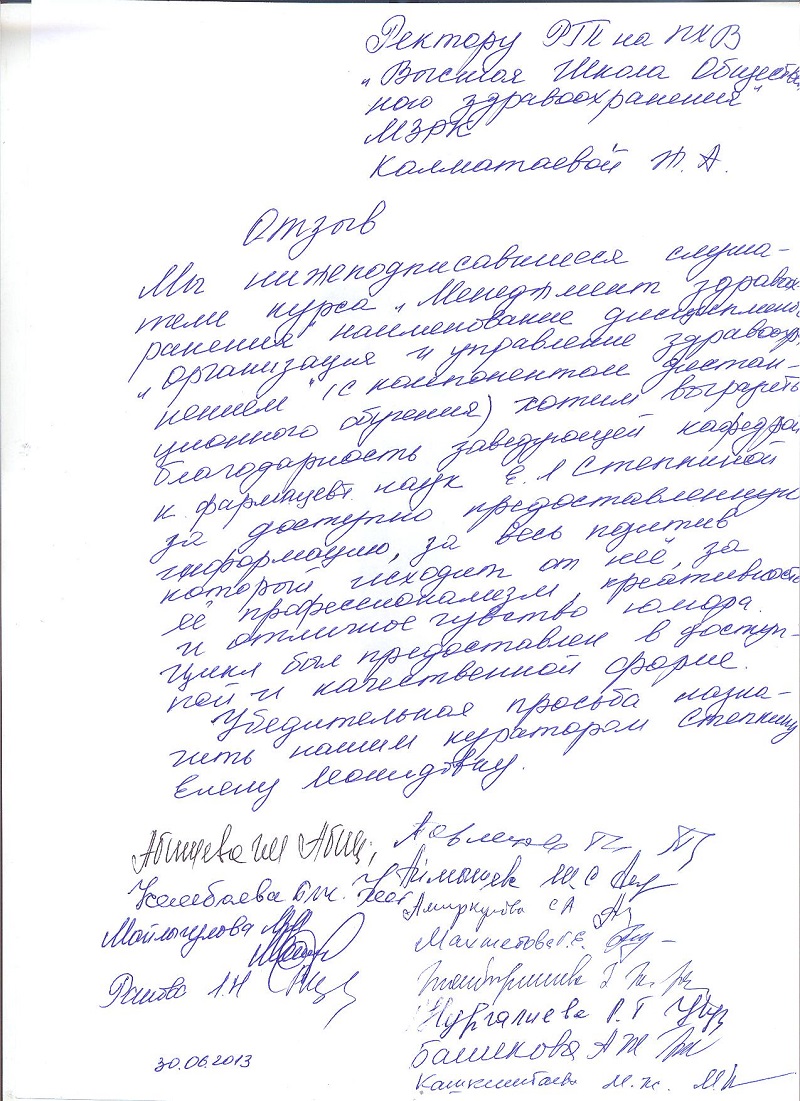 Ректору РГП на ПХВ
"Высшая Школа Обществен
ного здравоохранения"
МЗРК
Калматаевой Ж. А.
Отзыв
Мы нижеподписавшиеся слуша-
тели курса "Менеджмент здравоох
ранения" наименование дисциплины
"Организация и управление здравоохр.
нением" (с компонентом дистан-
ционного обучения) хотим выразить
благодарность заведующей кафедрой
к. фармацевт. наук Е. Л Степкиной
за доступно предоставленную
информацию, за весь позитив
который исходит от неё, за
её профессионализм, креативность
и отличное чувство юмора.
Цикл был предоставлен в доступ-
ной и качественной форме.
Убедительная просьба назна-
чить нашим куратором Степкину
Елену Леонидовну.
Абищева
Айменев М. С
Амиркулова С А
Майлыгулова
Махметова Г. Е.
Раисова Л. Н
Нургалиева Р. Т
Башкова А Ж
30.06.2013
М. Ж.